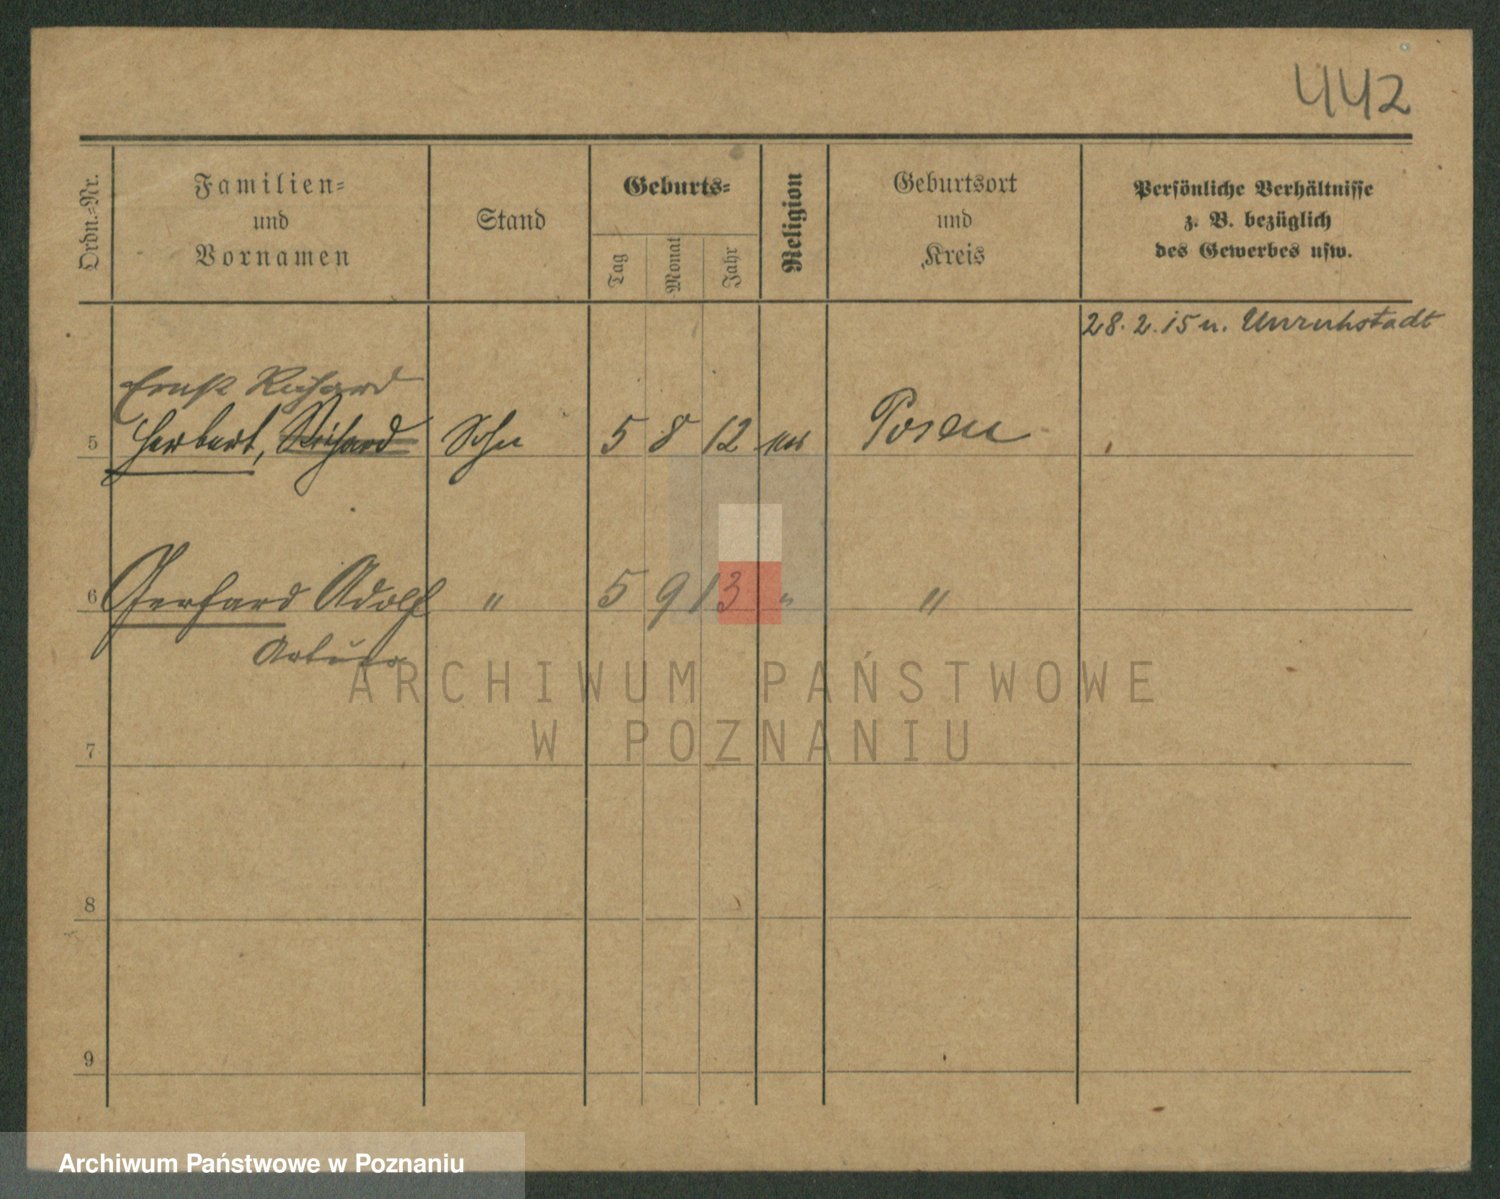 442
Ordn.-Nr.
Familien-
und
Vornamen
Stand
Geburts-
Tag
Monat
Jahr
Religion
Geburtsort
und
Kreis
Persönliche Verhältnisse
z. B. bezüglich
des Gewerbes usw.
28. 2. 15 n. Unruhstadt
Ernst Richard
5 Herbert, Richard Sohn 5 8 12 Posen
6 Gerhard Adolf " 5 9 13 " "
Artur
7
8
9
ARCHIWUM PAŃSTWOWE
W POZNANIU
Archiwum Państwowe w Poznaniu